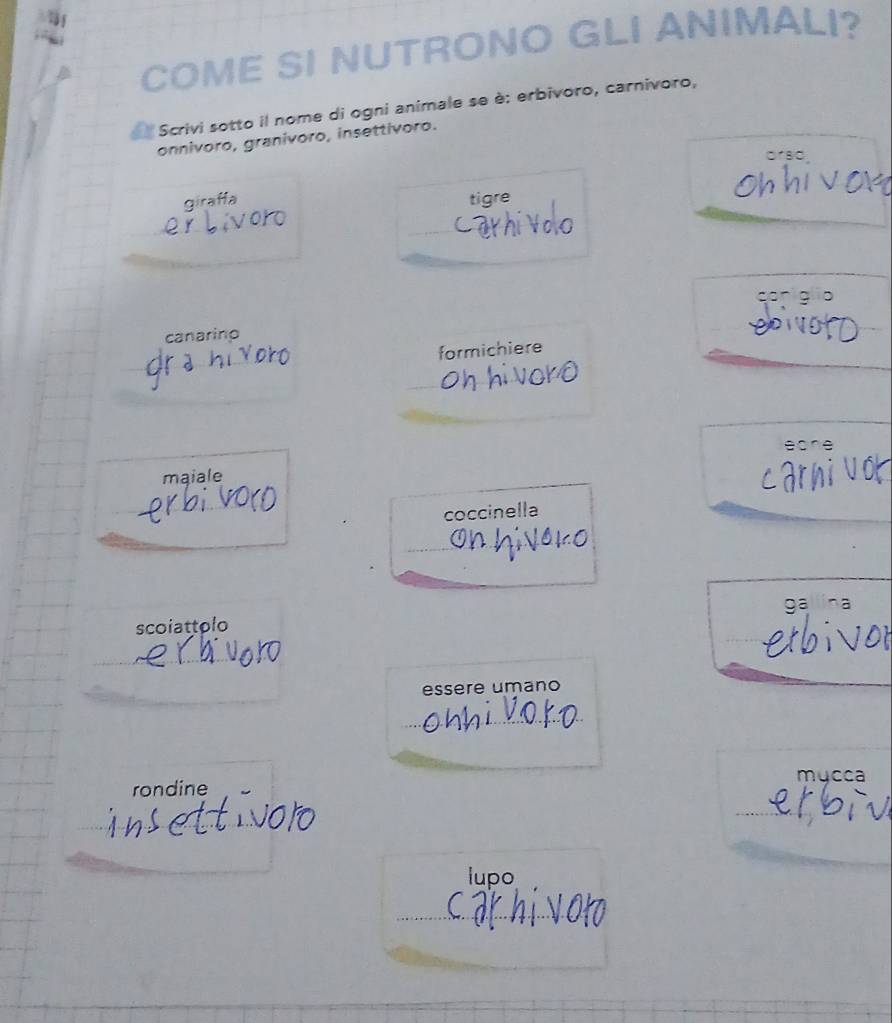 COME SI NUTRONO GLI ANIMALI?
Scrivi sotto il nome di ogni animale se è: erbivoro, carnivoro,
onnivoro, granivoro, insettivoro.
giraffa
erbivoro
tigre
carnivolo
orso
onnivoro
canarino
granivoro
formichiere
onnivoro
coniglio
ebivoro
maiale
erbivoro
coccinella
onnivoro
leone
carnivor
scoiattolo
erbivoro
essere umano
onnivoro
gallina
erbivor
rondine
insettivoro
lupo
carnivoro
mucca
erbiv